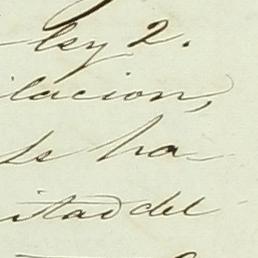 ley 2.
ilacion,
se ha-
itad del